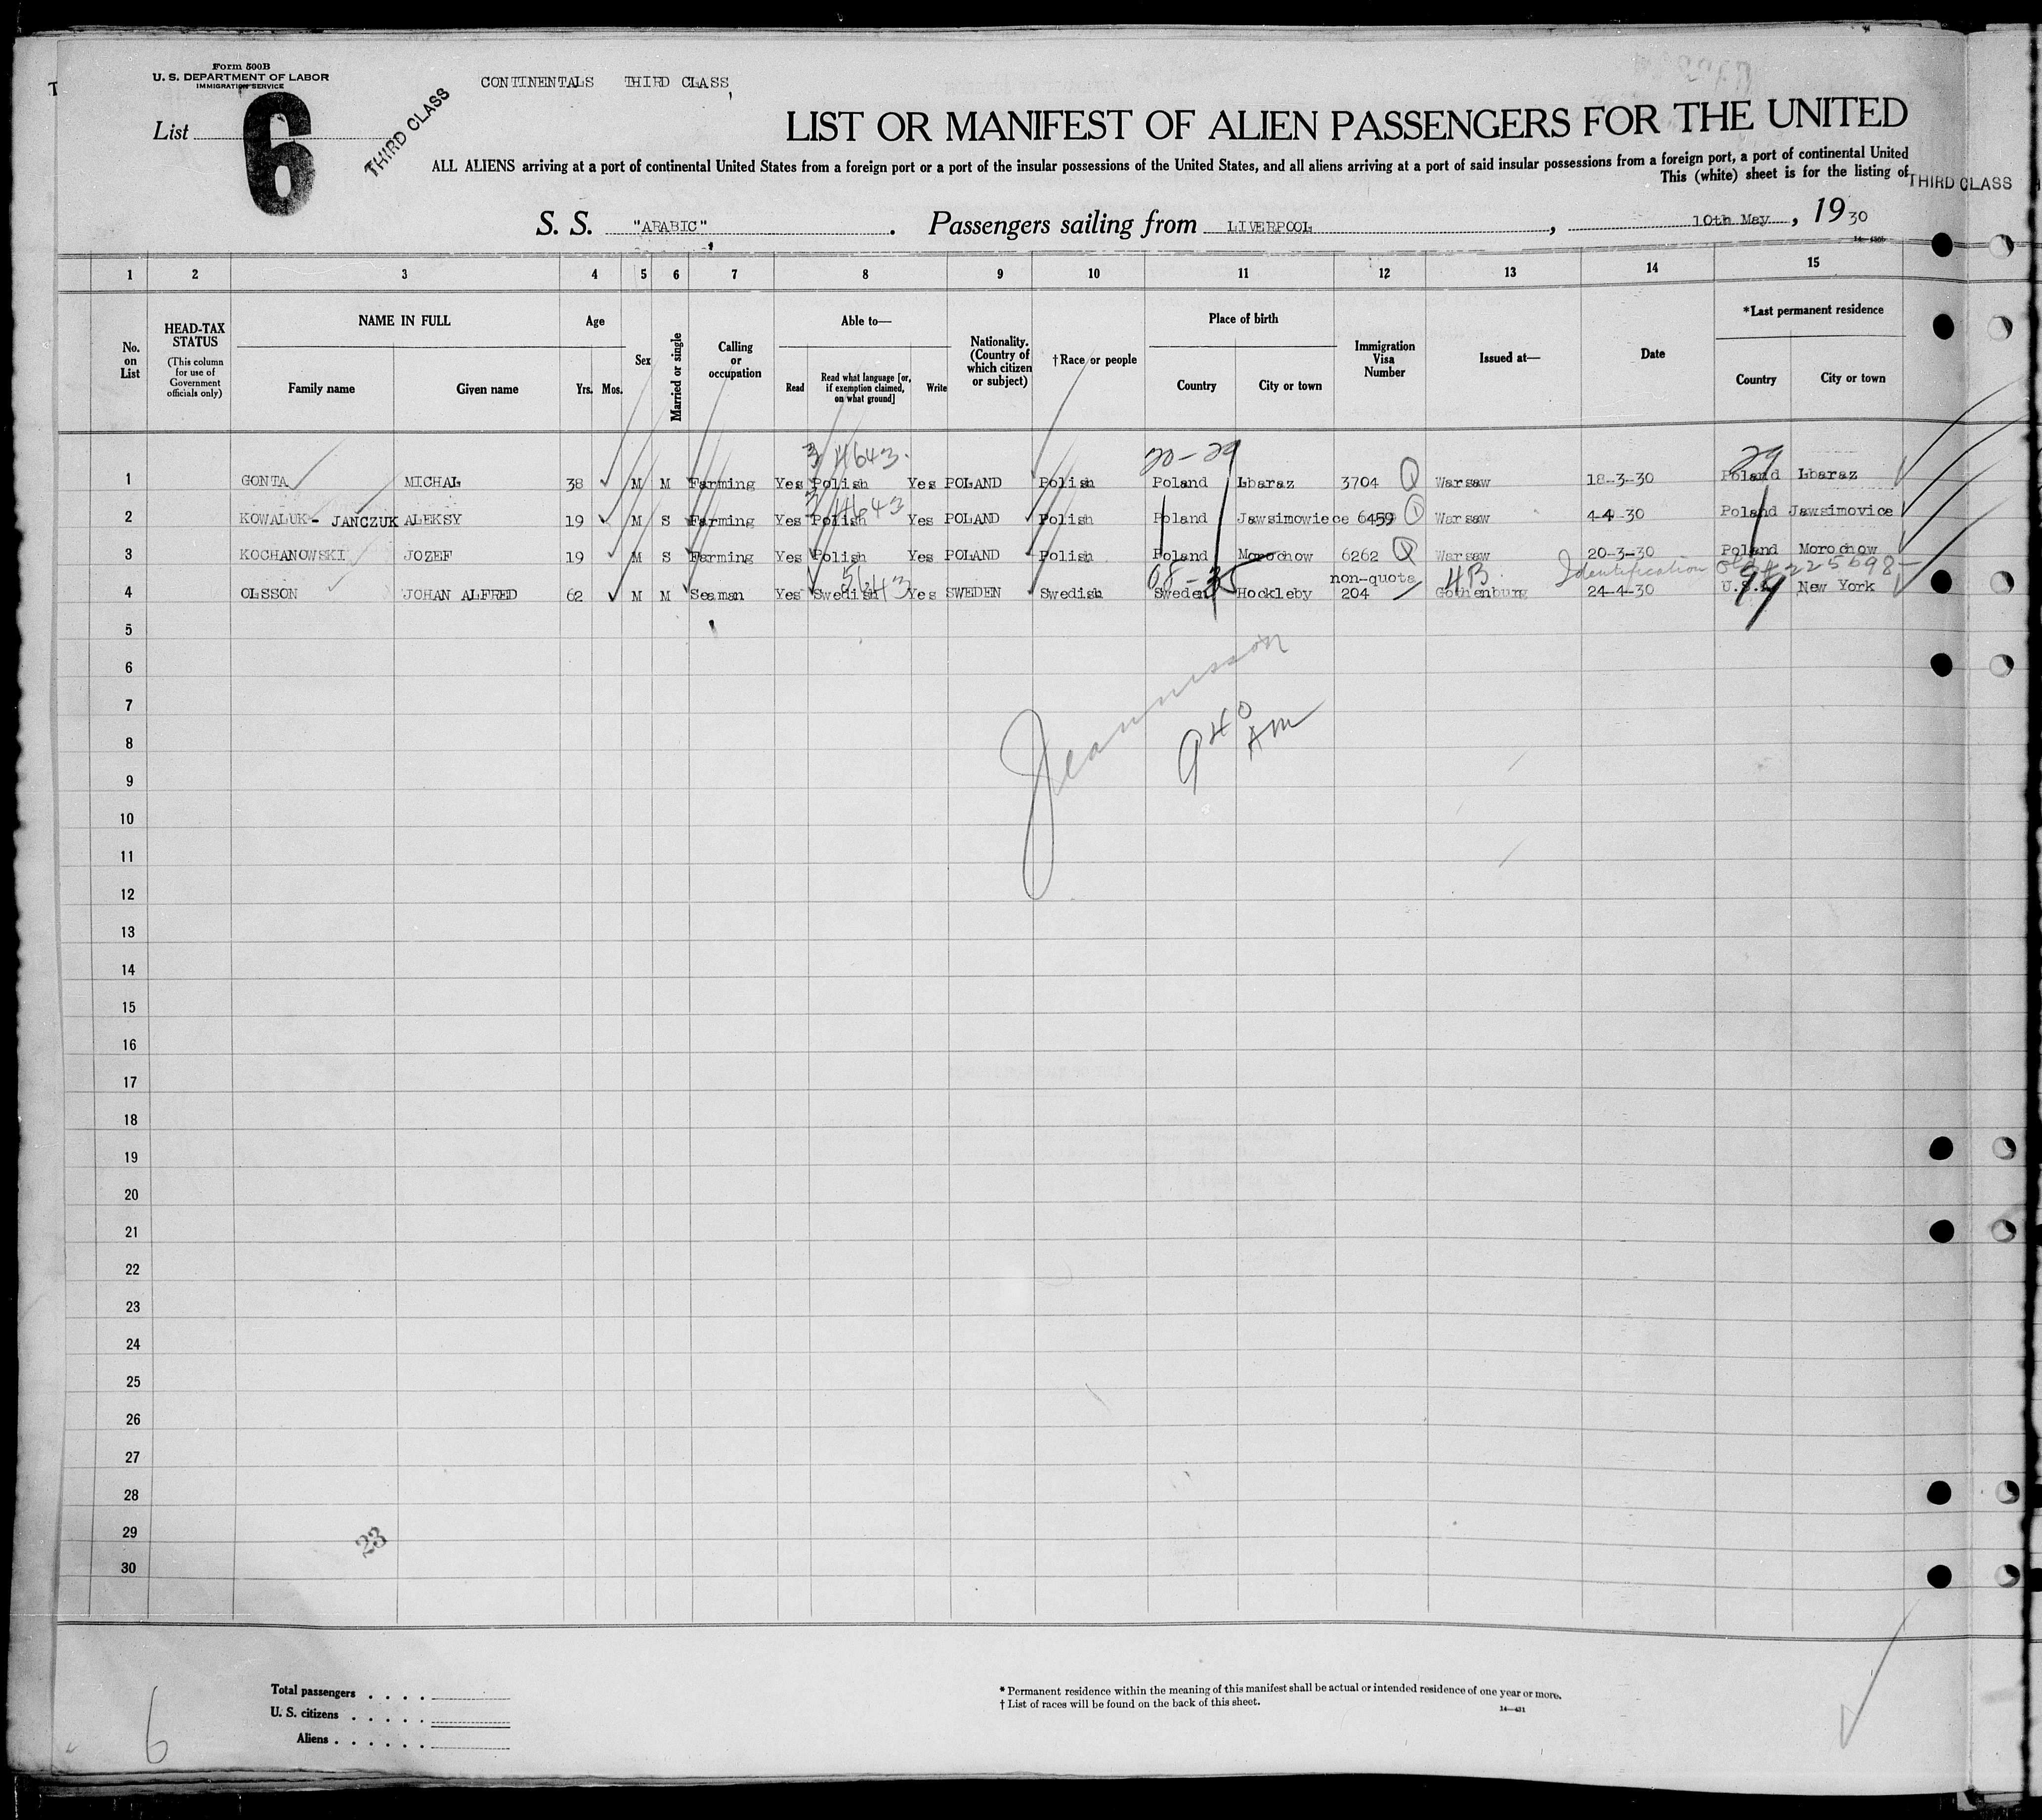 Form 500B
U. S. DEPARTMENT OF LABOR
IMMIGRATION SERVICE
CONTINENTALS THIRD CLASS,
List 6
THIRD CLASS
LIST OR MANIFEST OF ALIEN PASSENGERS FOR THE UNITED
ALL ALIENS arriving at a port of continental United States from a foreign port or a port of the insular possessions of the United States, and all aliens arriving at a port of said insular possessions from a foreign port, a port of continental United
This (white) sheet is for the listing of
THIRD CLASS
S. S. "ARABIC". Passengers sailing from LIVERPOOL, 10th May, 1930
1 2 3 4 5 6 7 8 9 10 11 12 13 14 15
No. on List
HEAD-TAX STATUS (This column for use of Government officials only)
NAME IN FULL
Family name Given name
Age
Yrs. Mos.
Sex
Married or single
Calling or occupation
Able to—
Read
Read what language [or, if exemption claimed, on what ground]
Write
Nationality. (Country of which citizen or subject)
†Race or people
Place of birth
Country City or town
Immigration Visa Number
Issued at—
Date
*Last permanent residence
Country City or town
3 4643. 20-29 29
1 GONTA MICHAL 38 M M Farming Yes Polish Yes POLAND Polish Poland Lbaraz 3704 Q Warsaw 18-3-30 Poland Lbaraz
2 KOWALUK- JANCZUK ALEKSY 19 M S Farming Yes Polish Yes POLAND Polish Poland Jawsimowiece 6459 Warsaw 4-4-30 Poland Jawsimovice
3 KOCHANOWSKI JOZEF 19 M S Farming Yes Polish Yes POLAND Polish Poland Morochow 6262 Q Warsaw 20-3-30 Poland Morochow
68-35 non-quota 4B Identification 225698
4 OLSSON JOHAN ALFRED 62 M M Seaman Yes Swedish Yes SWEDEN Swedish Sweden Hockleby 204 Gothenburg 24-4-30 U.S.A. New York
99
5
6
7
8
940 AM
9
10
11
12
13
14
15
16
17
18
19
20
21
22
23
24
25
26
27
28
29
23
30
Total passengers . . . .
U. S. citizens . . . . .
Aliens . . . . . .
6
* Permanent residence within the meaning of this manifest shall be actual or intended residence of one year or more.
† List of races will be found on the back of this sheet.
14—431